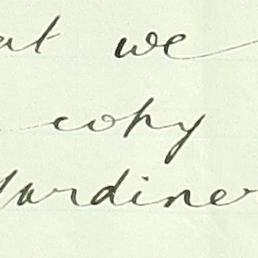 at we
copy
Gardiner